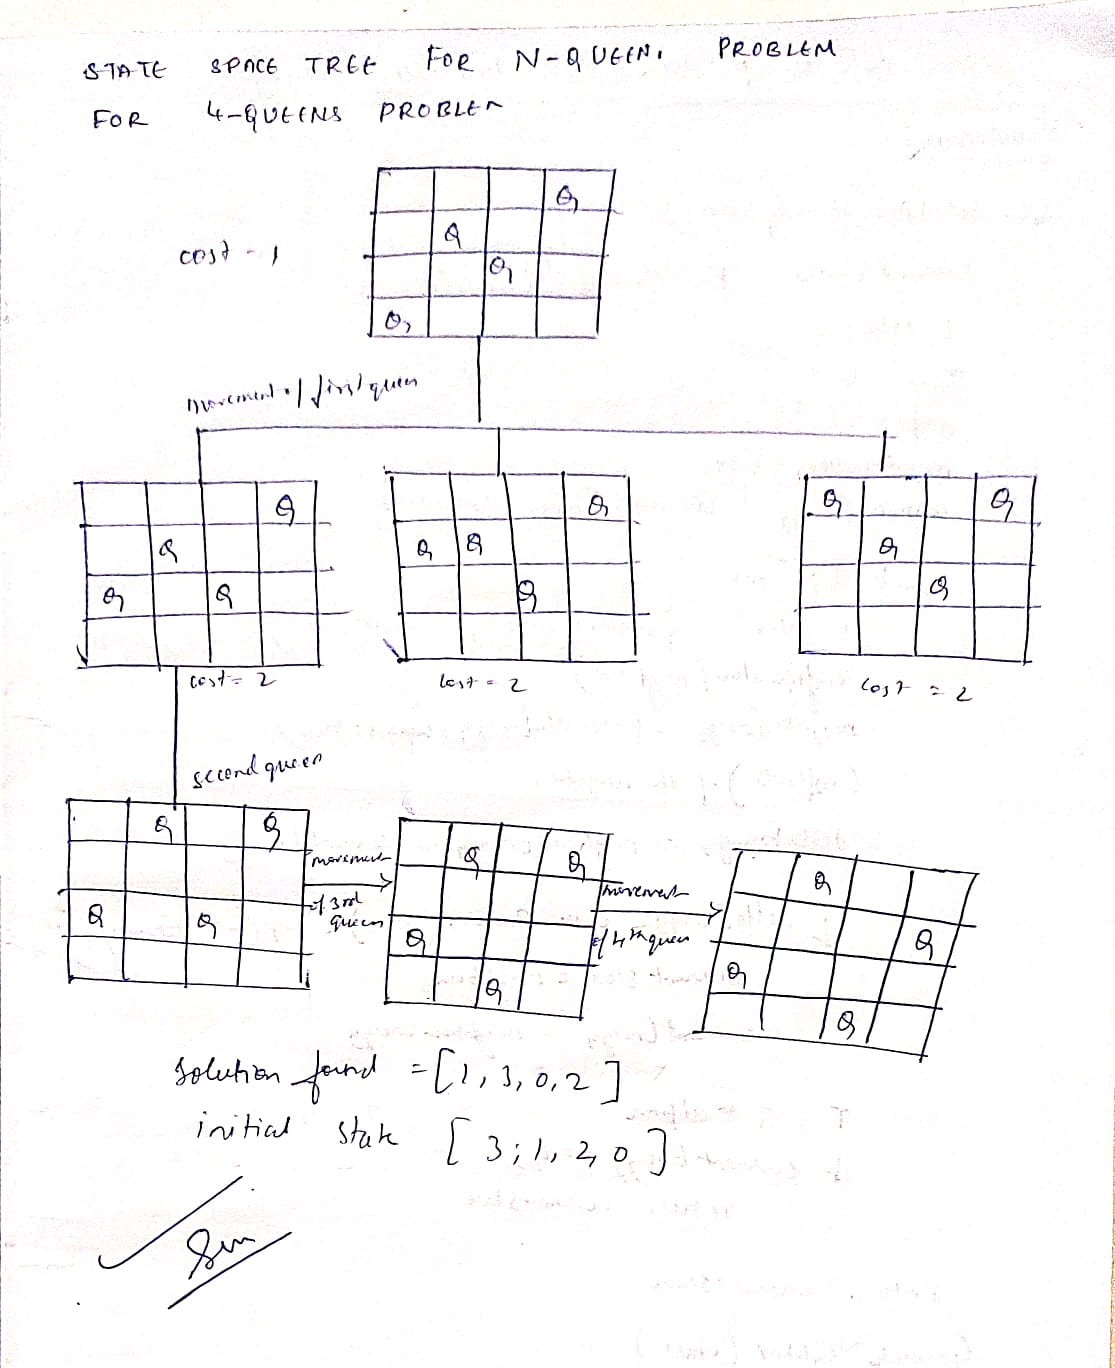 STATE SPACE TREE FOR N-QUEEN. PROBLEM
FOR 4-QUEENS PROBLEM
Q
Q
cost - 1
Q
Q
movement of first queen
Q
Q
Q
Q
Q
Q Q
Q
Q Q
Q
Q
cost = 2
cost = 2
cost = 2
second queen
Q Q
movement
of 3rd
queen
Q Q
Q Q
movement
of 4th queen
Q
Q
Q
Q
Q
Q
solution found = [1, 3, 0, 2]
initial state [3; 1, 2, 0]